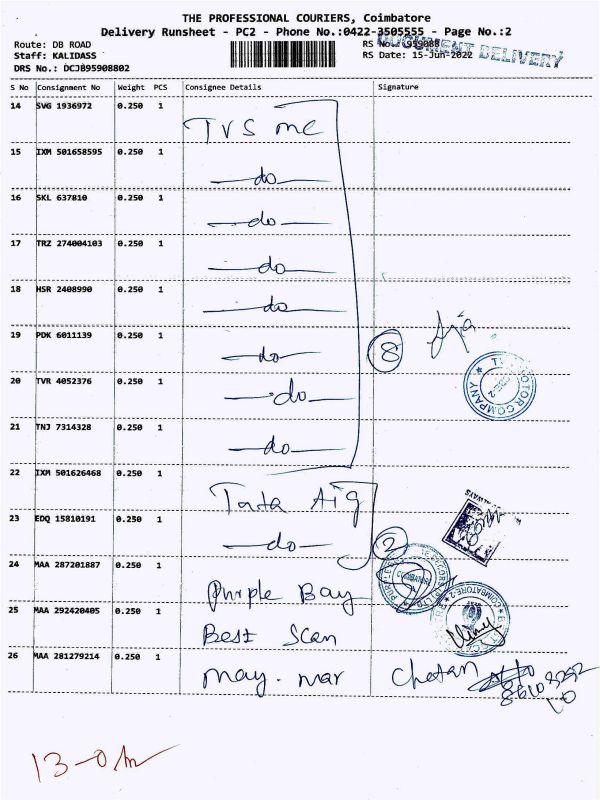 THE PROFESSIONAL COURIERS, Coimbatore
Delivery Runsheet - PC2 - Phone No.:0422-3505555 - Page No.:2
Route: DB ROAD
RS No.: 959088
DOCUMENT DELIVERY
Staff: KALIDASS
RS Date: 15-Jun-2022
DRS No.: DCJB95908802
S No Consignment No Weight PCS Consignee Details Signature
14 SVG 1936972 0.250 1 TVS mc
15 IXM 501658595 0.250 1 —do—
16 SKL 637810 0.250 1 —do—
17 TRZ 274004103 0.250 1 —do—
18 HSR 2408990 0.250 1 —do—
19 PDK 6011139 0.250 1 —do— 8
20 TVR 4052376 0.250 1 —do—
MOTOR COMPANY
21 TNJ 7314328 0.250 1 —do—
22 IXM 501626468 0.250 1 Tata Aig
23 EDQ 15810191 0.250 1 —do— 2
24 MAA 287201887 0.250 1 Purple Bay
COIMBATORE
25 MAA 292420405 0.250 1 Best Scan
COIMBATORE-2
26 MAA 281279214 0.250 1 may. mar Chetan